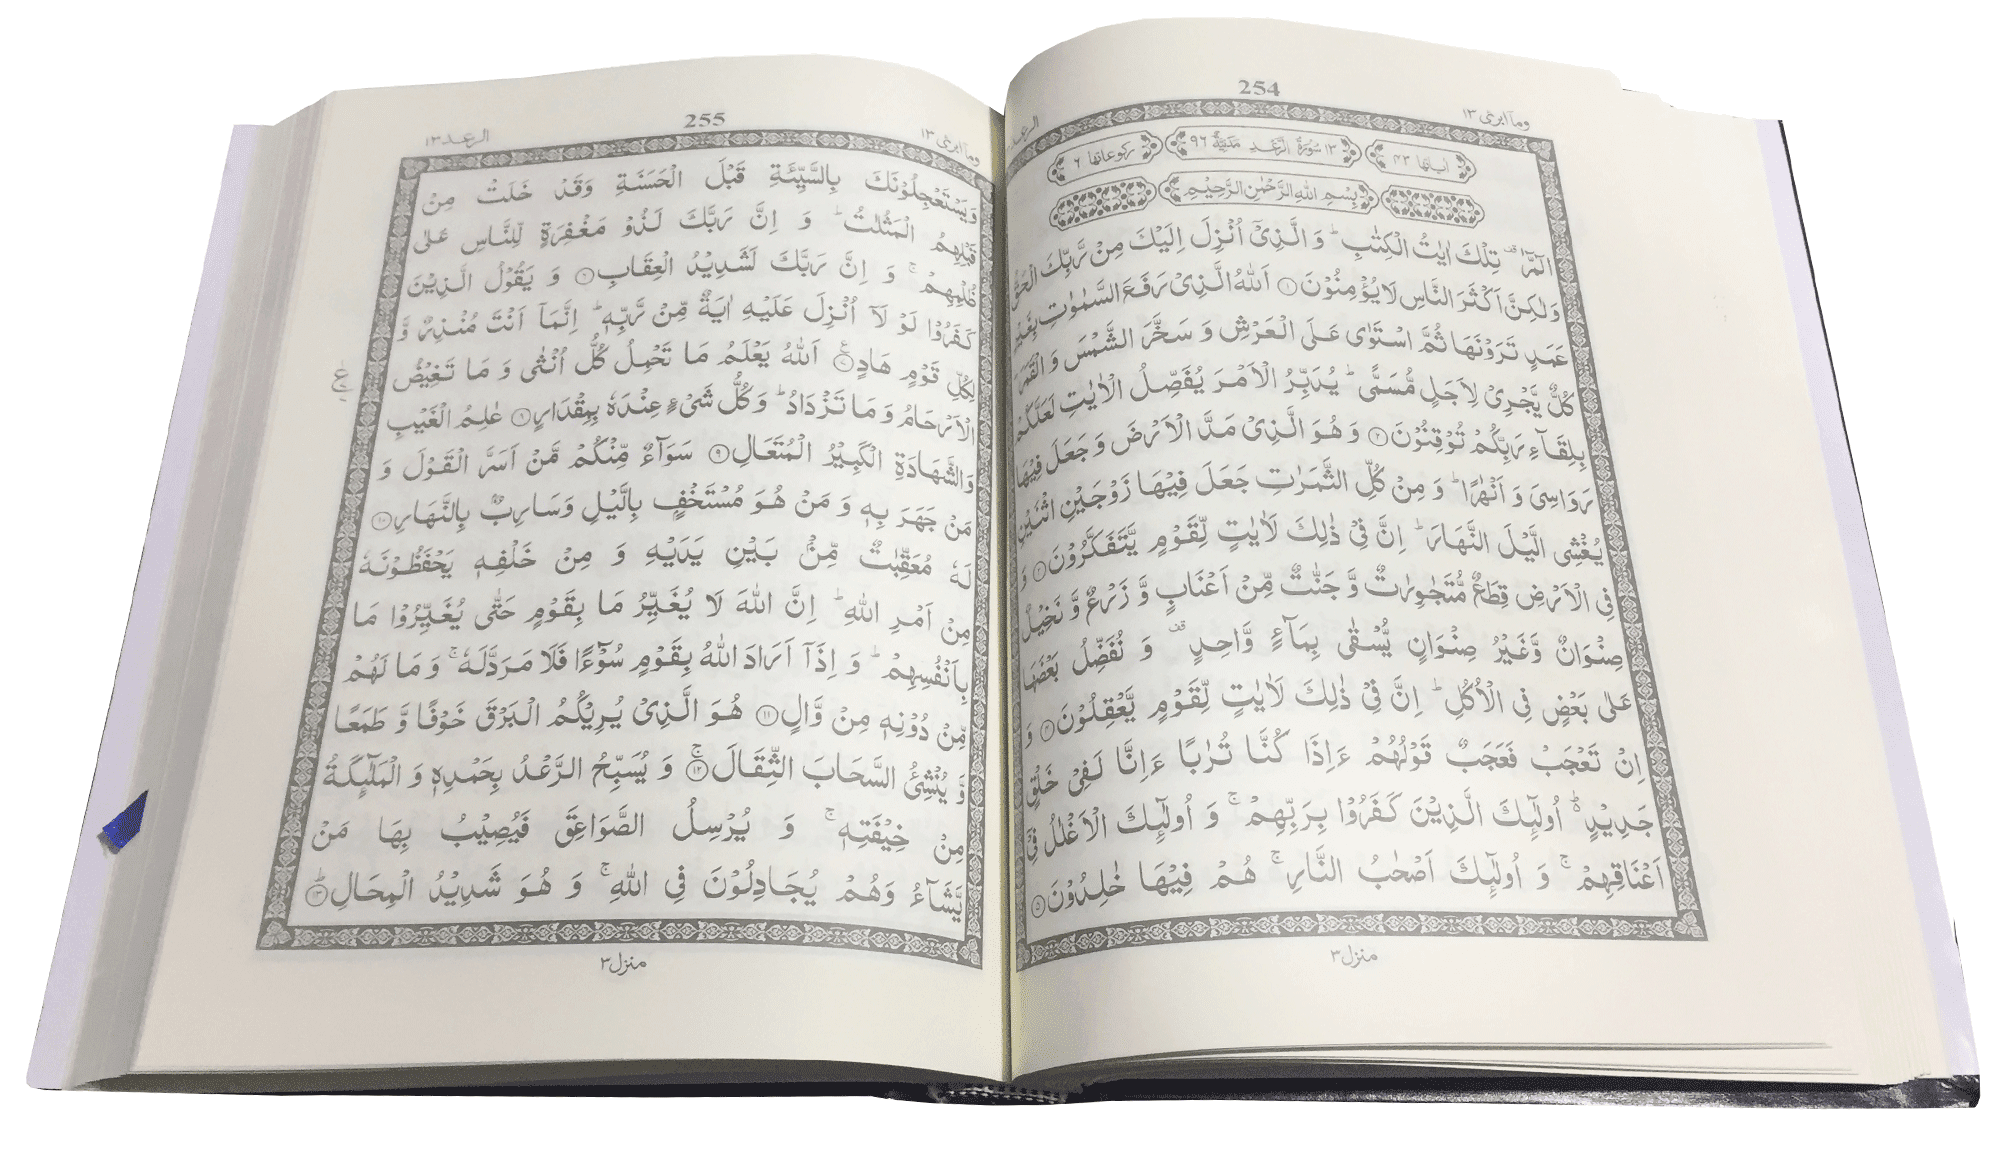 254
ومآ ابرئ ١٣
الرعد
اٰیاتها ٤٣
١٣ سُوْرَةُ الرَّعْدِ مَدَنِيَّةٌ ٩٦
رکوعاتها ٦
بِسْمِ اللهِ الرَّحْمٰنِ الرَّحِيْمِ
الٓمّٓرٰ ۟ تِلْكَ اٰيٰتُ الْكِتٰبِ ؕ وَ الَّذِيْۤ اُنْزِلَ اِلَيْكَ مِنْ رَّبِّكَ الْحَقُّ
وَلٰكِنَّ اَكْثَرَ النَّاسِ لَا يُؤْمِنُوْنَ ۝١ اَللّٰهُ الَّذِيْ رَفَعَ السَّمٰوٰتِ بِغَيْرِ
عَمَدٍ تَرَوْنَهَا ثُمَّ اسْتَوٰى عَلَى الْعَرْشِ وَ سَخَّرَ الشَّمْسَ وَ الْقَمَرَ ؕ
كُلٌّ يَّجْرِيْ لِاَجَلٍ مُّسَمًّى ؕ يُدَبِّرُ الْاَمْرَ يُفَصِّلُ الْاٰيٰتِ لَعَلَّكُمْ
بِلِقَآءِ رَبِّكُمْ تُوْقِنُوْنَ ۝٢ وَ هُوَ الَّذِيْ مَدَّ الْاَرْضَ وَ جَعَلَ فِيْهَا
رَوَاسِيَ وَ اَنْهٰرًا ؕ وَ مِنْ كُلِّ الثَّمَرٰتِ جَعَلَ فِيْهَا زَوْجَيْنِ اثْنَيْنِ
يُغْشِي الَّيْلَ النَّهَارَ ؕ اِنَّ فِيْ ذٰلِكَ لَاٰيٰتٍ لِّقَوْمٍ يَّتَفَكَّرُوْنَ ۝٣ وَ
فِي الْاَرْضِ قِطَعٌ مُّتَجٰوِرٰتٌ وَّ جَنّٰتٌ مِّنْ اَعْنَابٍ وَّ زَرْعٌ وَّ نَخِيْلٌ
صِنْوَانٌ وَّغَيْرُ صِنْوَانٍ يُّسْقٰى بِمَآءٍ وَّاحِدٍ ۟ وَ نُفَضِّلُ بَعْضَهَا
عَلٰى بَعْضٍ فِي الْاُكُلِ ؕ اِنَّ فِيْ ذٰلِكَ لَاٰيٰتٍ لِّقَوْمٍ يَّعْقِلُوْنَ ۝٤ وَ
اِنْ تَعْجَبْ فَعَجَبٌ قَوْلُهُمْ ءَاِذَا كُنَّا تُرٰبًا ءَاِنَّا لَفِيْ خَلْقٍ
جَدِيْدٍ ؕ۬ اُولٰٓئِكَ الَّذِيْنَ كَفَرُوْا بِرَبِّهِمْ ۚ وَ اُولٰٓئِكَ الْاَغْلٰلُ فِيْۤ
اَعْنَاقِهِمْ ۚ وَ اُولٰٓئِكَ اَصْحٰبُ النَّارِ ۚ هُمْ فِيْهَا خٰلِدُوْنَ ۝٥
منزل ٣
255
ومآ ابرئ ١٣
الرعد ١٣
وَيَسْتَعْجِلُوْنَكَ بِالسَّيِّئَةِ قَبْلَ الْحَسَنَةِ وَقَدْ خَلَتْ مِنْ
قَبْلِهِمُ الْمَثُلٰتُ ؕ وَ اِنَّ رَبَّكَ لَذُوْ مَغْفِرَةٍ لِّلنَّاسِ عَلٰى
ظُلْمِهِمْ ۚ وَ اِنَّ رَبَّكَ لَشَدِيْدُ الْعِقَابِ ۝٦ وَ يَقُوْلُ الَّذِيْنَ
كَفَرُوْا لَوْ لَاۤ اُنْزِلَ عَلَيْهِ اٰيَةٌ مِّنْ رَّبِّهٖ ؕ اِنَّمَاۤ اَنْتَ مُنْذِرٌ وَّ
لِكُلِّ قَوْمٍ هَادٍ ۝٧ اَللّٰهُ يَعْلَمُ مَا تَحْمِلُ كُلُّ اُنْثٰى وَ مَا تَغِيْضُ
الْاَرْحَامُ وَ مَا تَزْدَادُ ؕ وَكُلُّ شَيْءٍ عِنْدَهٗ بِمِقْدَارٍ ۝٨ عٰلِمُ الْغَيْبِ
وَالشَّهَادَةِ الْكَبِيْرُ الْمُتَعَالِ ۝٩ سَوَآءٌ مِّنْكُمْ مَّنْ اَسَرَّ الْقَوْلَ وَ
مَنْ جَهَرَ بِهٖ وَ مَنْ هُوَ مُسْتَخْفٍ بِالَّيْلِ وَسَارِبٌ بِالنَّهَارِ ۝١٠
لَهٗ مُعَقِّبٰتٌ مِّنْۢ بَيْنِ يَدَيْهِ وَ مِنْ خَلْفِهٖ يَحْفَظُوْنَهٗ
مِنْ اَمْرِ اللّٰهِ ؕ اِنَّ اللّٰهَ لَا يُغَيِّرُ مَا بِقَوْمٍ حَتّٰى يُغَيِّرُوْا مَا
بِاَنْفُسِهِمْ ؕ وَ اِذَاۤ اَرَادَ اللّٰهُ بِقَوْمٍ سُوْٓءًا فَلَا مَرَدَّ لَهٗ ۚ وَ مَا لَهُمْ
مِّنْ دُوْنِهٖ مِنْ وَّالٍ ۝١١ هُوَ الَّذِيْ يُرِيْكُمُ الْبَرْقَ خَوْفًا وَّ طَمَعًا
وَّ يُنْشِئُ السَّحَابَ الثِّقَالَ ۝١٢ۚ وَ يُسَبِّحُ الرَّعْدُ بِحَمْدِهٖ وَ الْمَلٰٓئِكَةُ
مِنْ خِيْفَتِهٖ ۚ وَ يُرْسِلُ الصَّوَاعِقَ فَيُصِيْبُ بِهَا مَنْ
يَّشَآءُ وَهُمْ يُجَادِلُوْنَ فِي اللّٰهِ ۚ وَ هُوَ شَدِيْدُ الْمِحَالِ ۝١٣ؕ
منزل ٣